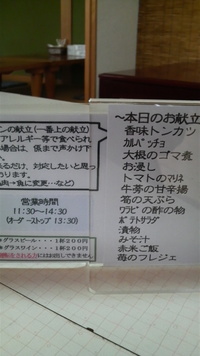 ンの献立(一番上の献立
アレルギー等で食べられ
場合は、係まで声かけ下
るだけ、対応したいと思っ
ります。
肉→魚に変更…など)
営業時間
11:30～14:30
(オーダーストップ 13:30)
※グラスビール・・・1杯200円
※グラスワイン・・・1杯200円
にはお出しできません
～本日のお献立
香味トンカツ
カルパッチョ
大根のゴマ煮
お浸し
トマトのマリネ
牛蒡の甘辛揚
筍の天ぷら
ワラビの酢の物
ポテトサラダ
漬物
みそ汁
赤米ご飯
苺のフレジェ